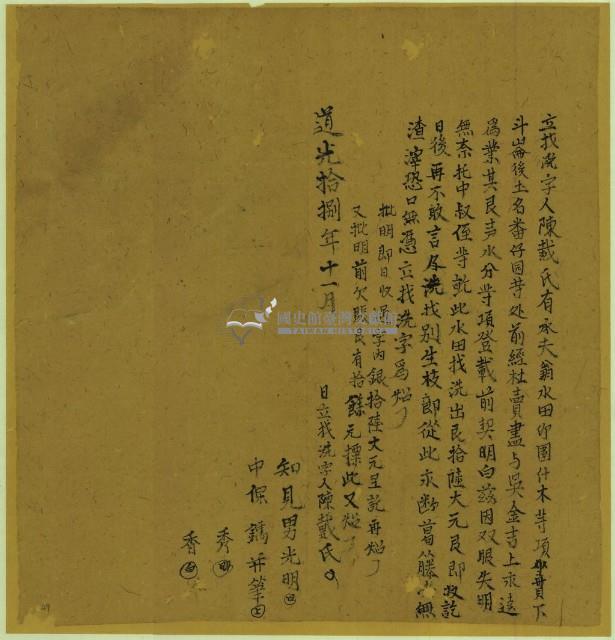 立找洗字人陳戴氏有承夫翁水田卯園什木等項坐貫下
斗崙後土名番仔园等处前經杜賣盡与吳金吉上永遠
為業其艮声水分等項登載前契明白茲因双眼失明
無奈托中叔侄等就此水田找洗出艮拾陸大元艮即收訖
日後再不敢言及洗找別生枝節從此永断葛籐 無
渣滓恐口無憑立找洗字為炤
批明即日收 字內銀拾陸大元呈訖再炤
又批明前欠 艮有拾餘元摽此又炤
道光拾捌年十一月 日立找洗字人陳戴氏
知見男光明
中保 并筆
秀
香
國史館臺灣文獻館
TAIWAN HISTORICA